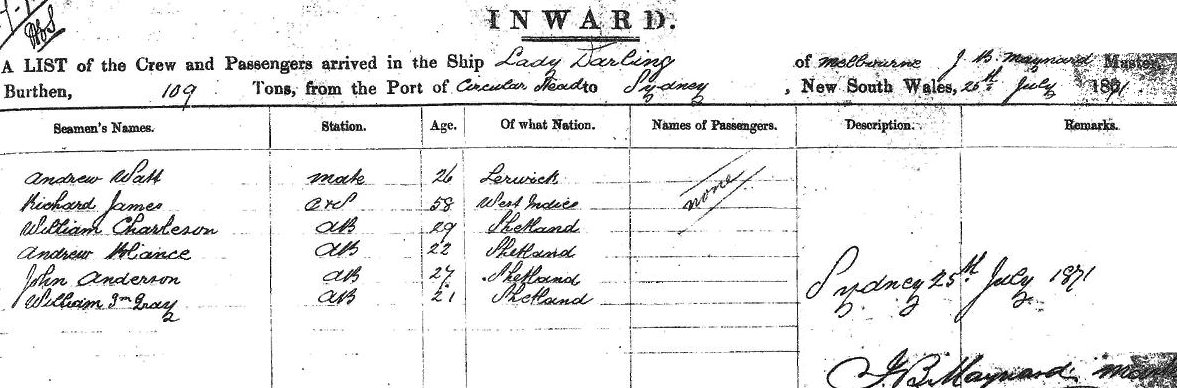 INWARD.
A LIST of the Crew and Passengers arrived in the Ship Lady Darling of Melbourne J B Maynard Master,
Burthen, 109 Tons, from the Port of Circular Head to Sydney, New South Wales, 25th July 1871
Seamen's Names. Station. Age. Of what Nation. Names of Passengers. Description. Remarks.
Andrew Watt mate 26 Lerwick none
Richard James 58 West Indies
William Charleson AB 29 Shetland
Andrew AB 22 Shetland
John Anderson AB 27 Shetland
William Gray AB 21 Shetland
Sydney 25th July 1871
J B Maynard